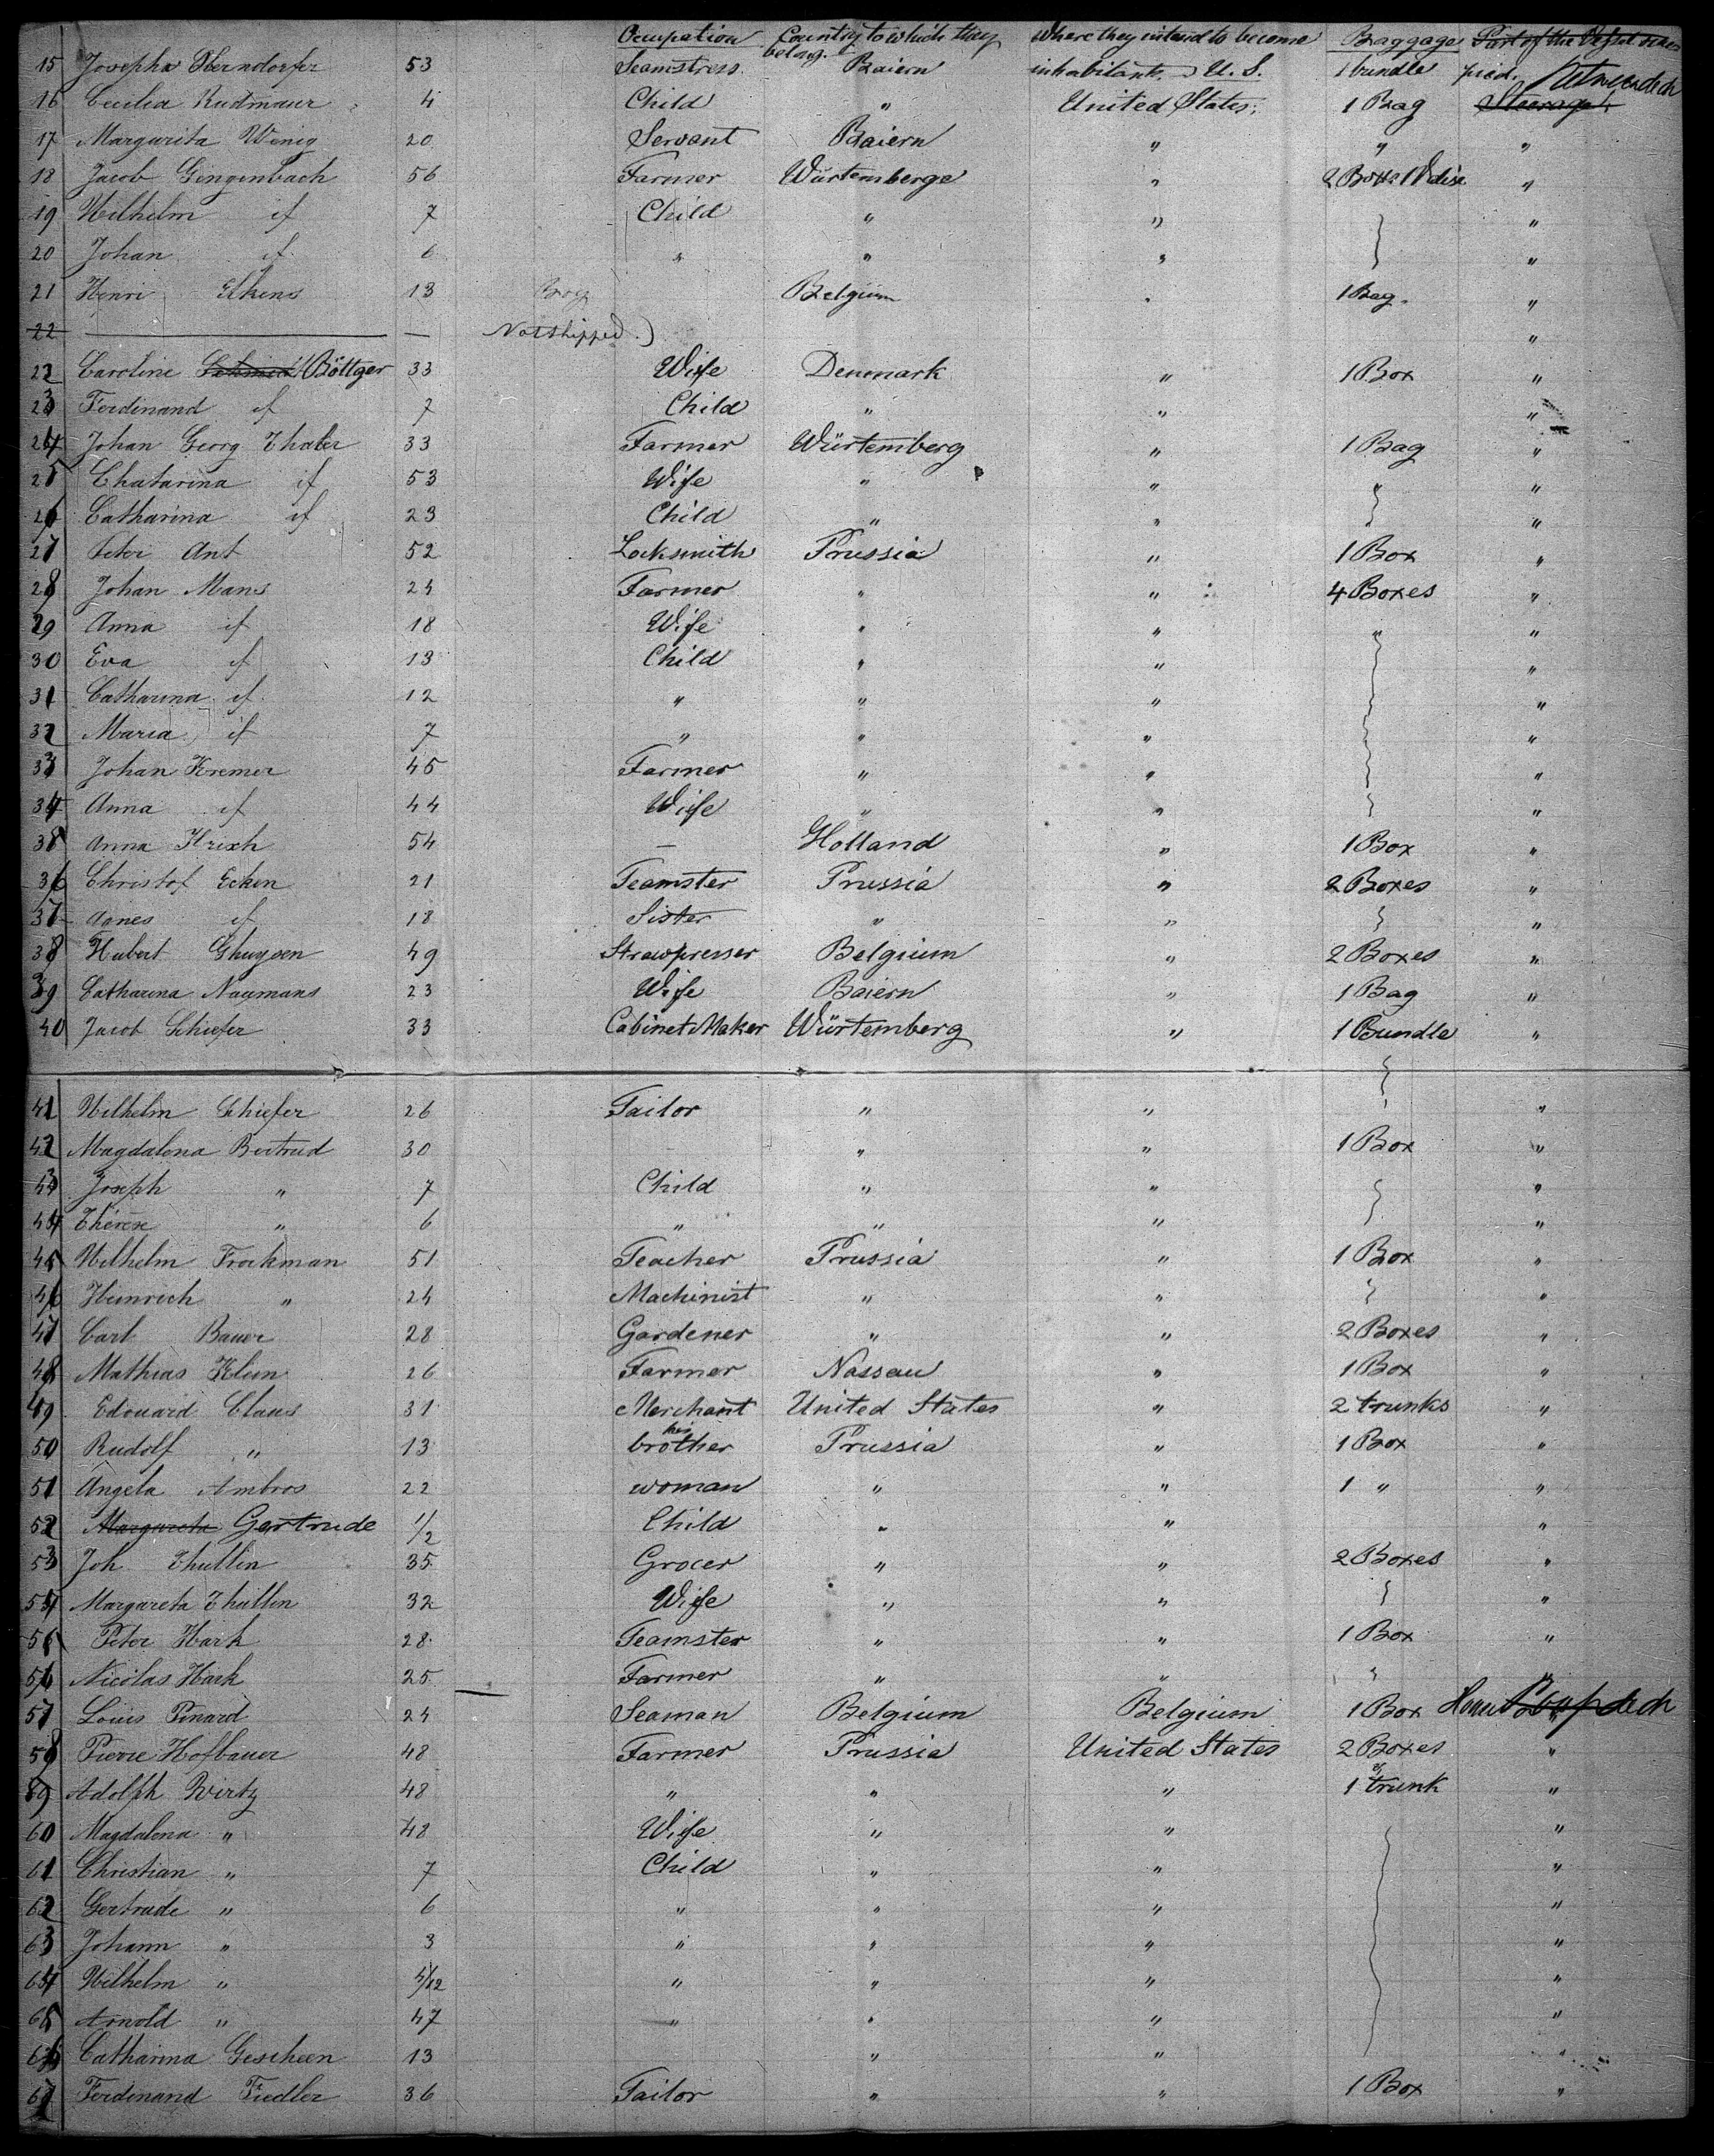 Occupation Country to which they belong. Where they intend to become inhabitants Baggage Part of the Vessel
15 Josepha Oberndorfer 53 Seamstress. Baiern U. S. 1 bundle
16 Cecilia Rudmaur 4 Child " United States. 1 Bag Steerage
17 Margarita Wenig 20 Servant Baiern " " "
18 Jacob Gengenbach 56 Farmer Würtemberge " 2 Boxes 1 "
19 Wilhelm if 7 Child " " "
20 Johan if 6 " " " "
21 Henri Elkens 13 Boy Belgium " 1 Bag. "
22 — — Not shipped.) "
22 Caroline Schmidt Böttger 33 Wife Denmark " 1 Box "
23 Ferdinand if 7 Child " " "
24 Johan Georg Thaler 33 Farmer Würtemberg " 1 Bag "
25 Chatarina if 53 Wife " " " "
26 Catharina if 23 Child " " "
27 Peter Ant 52 Locksmith Prussia " 1 Box "
28 Johan Mans 24 Farmer " " 4 Boxes "
29 Anna if 18 Wife " " " "
30 Eva if 13 Child " " "
31 Catharina if 12 " " " "
32 Maria if 7 " " " "
33 Johan Kremer 45 Farmer " " "
34 Anna if 44 Wife " " "
35 Anna 54 — Holland " 1 Box "
36 Christof Ecken 21 Teamster Prussia " 2 Boxes "
37 Agnes if 18 Sister " " "
38 Hubert Ghuysen 49 Strawpresser Belgium " 2 Boxes "
39 Catharina Naumans 23 Wife Baiern " 1 Bag "
40 Jacob Schiefer 33 Cabinet Maker Würtemberg " 1 Bundle "
41 Wilhelm Schiefer 26 Tailor " " "
42 Magdalena Bertrud 30 " " 1 Box "
43 Joseph " 7 Child " " "
44 Thérese " 6 " " " "
45 Wilhelm Frockman 51 Teacher Prussia " 1 Box "
46 Heinrich " 24 Machinist " " "
47 Carl Bauer 28 Gardener " " 2 Boxes "
48 Mathias Klein 26 Farmer Nassau " 1 Box "
49 Edouard Claus 31 Merchant United States " 2 trunks "
50 Rudolf " 13 his brother Prussia " 1 Box "
51 Angela Ambros 22 woman " " 1 " "
52 Margareta Gertrude 1/2 Child " " "
53 Joh Thullin 35 Grocer " " 2 Boxes "
54 Margareta Thullin 32 Wife " " "
55 Peter Hark 28 Teamster " " 1 Box "
56 Nicolas Hark 25 Farmer " " " "
57 Louis Pinard 24 Seaman Belgium Belgium 1 Box
58 Pierre Hofbauer 48 Farmer Prussia United States 2 Boxes "
59 Adolph Wirtz 48 " " " 1 trunk "
60 Magdalena " 48 Wife " " "
61 Christian " 7 Child " " "
62 Gertrude " 6 " " " "
63 Johann " 3 " " " "
64 Wilhelm " " " " "
65 Arnold " 47 " " " "
66 Catharina Gescheen 13 " " "
67 Ferdinand Fiedler 36 Tailor " " 1 Box "